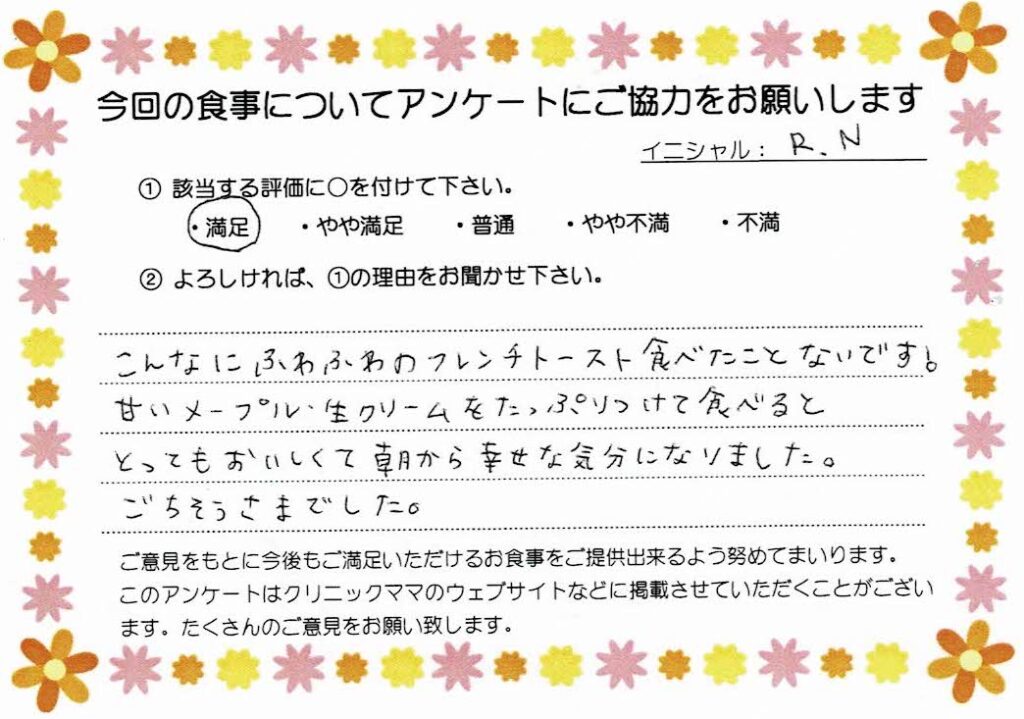 今回の食事についてアンケートにご協力をお願いします
イニシャル： R.N
① 該当する評価に○を付けて下さい。
・満足 ・やや満足 ・普通 ・やや不満 ・不満
② よろしければ、①の理由をお聞かせ下さい。
こんなにふわふわのフレンチトースト食べたことないです！
甘いメープル・生クリームをたっぷりつけて食べると
とってもおいしくて朝から幸せな気分になりました。
ごちそうさまでした。
ご意見をもとに今後もご満足いただけるお食事をご提供出来るよう努めてまいります。
このアンケートはクリニックママのウェブサイトなどに掲載させていただくことがござい
ます。たくさんのご意見をお願い致します。